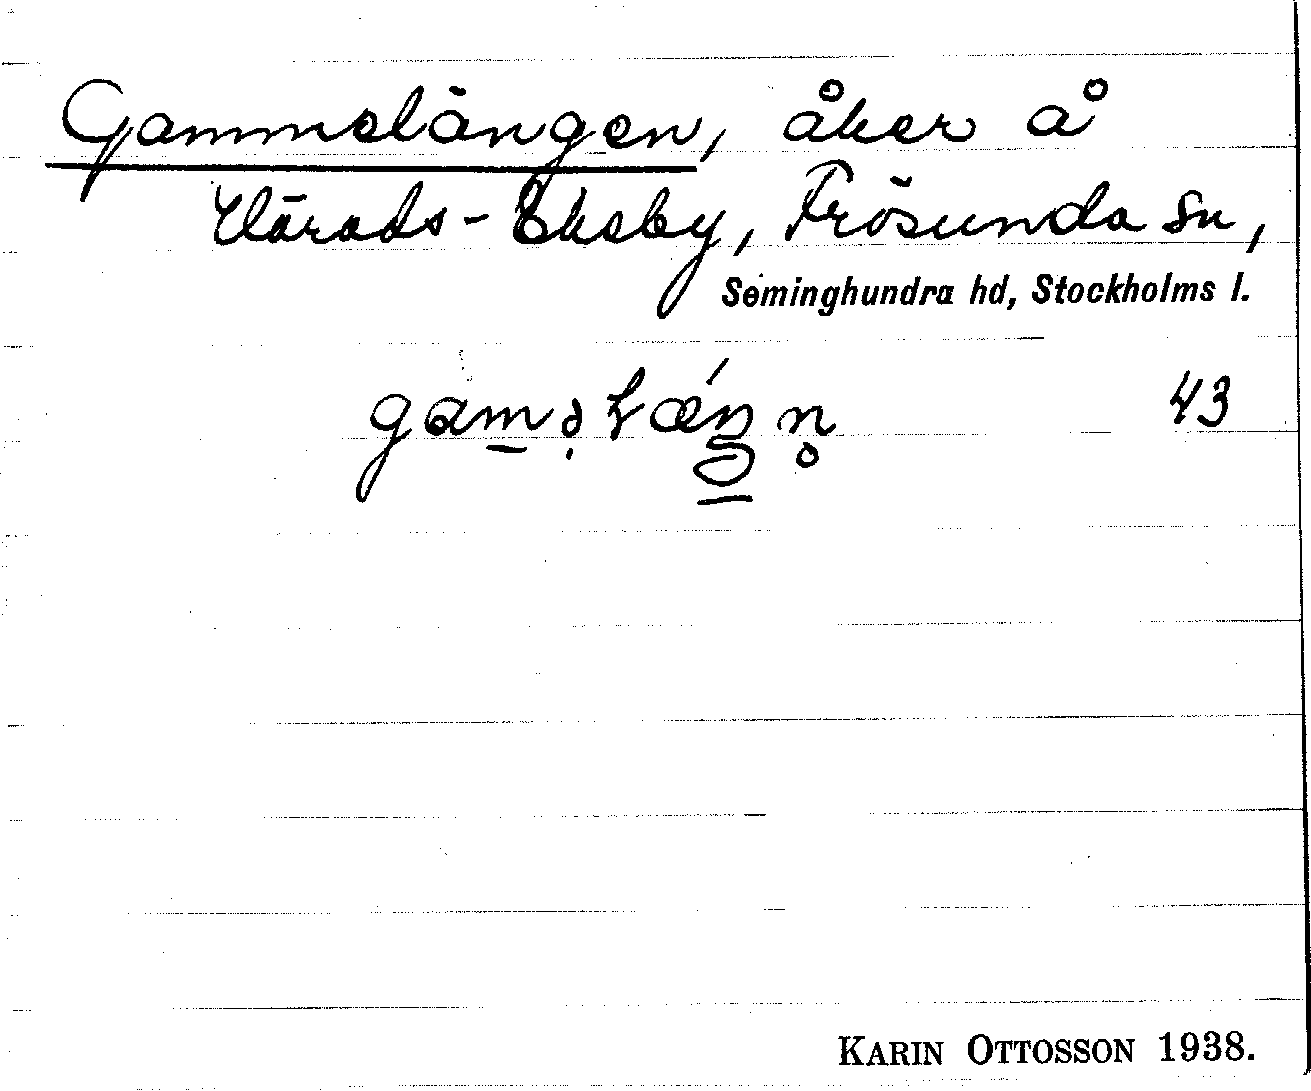 Gammelängen, åker å
Härads-Ekeby, Frösunda sn,
Seminghundra hd, Stockholms l.
43
KARIN OTTOSSON 1938.